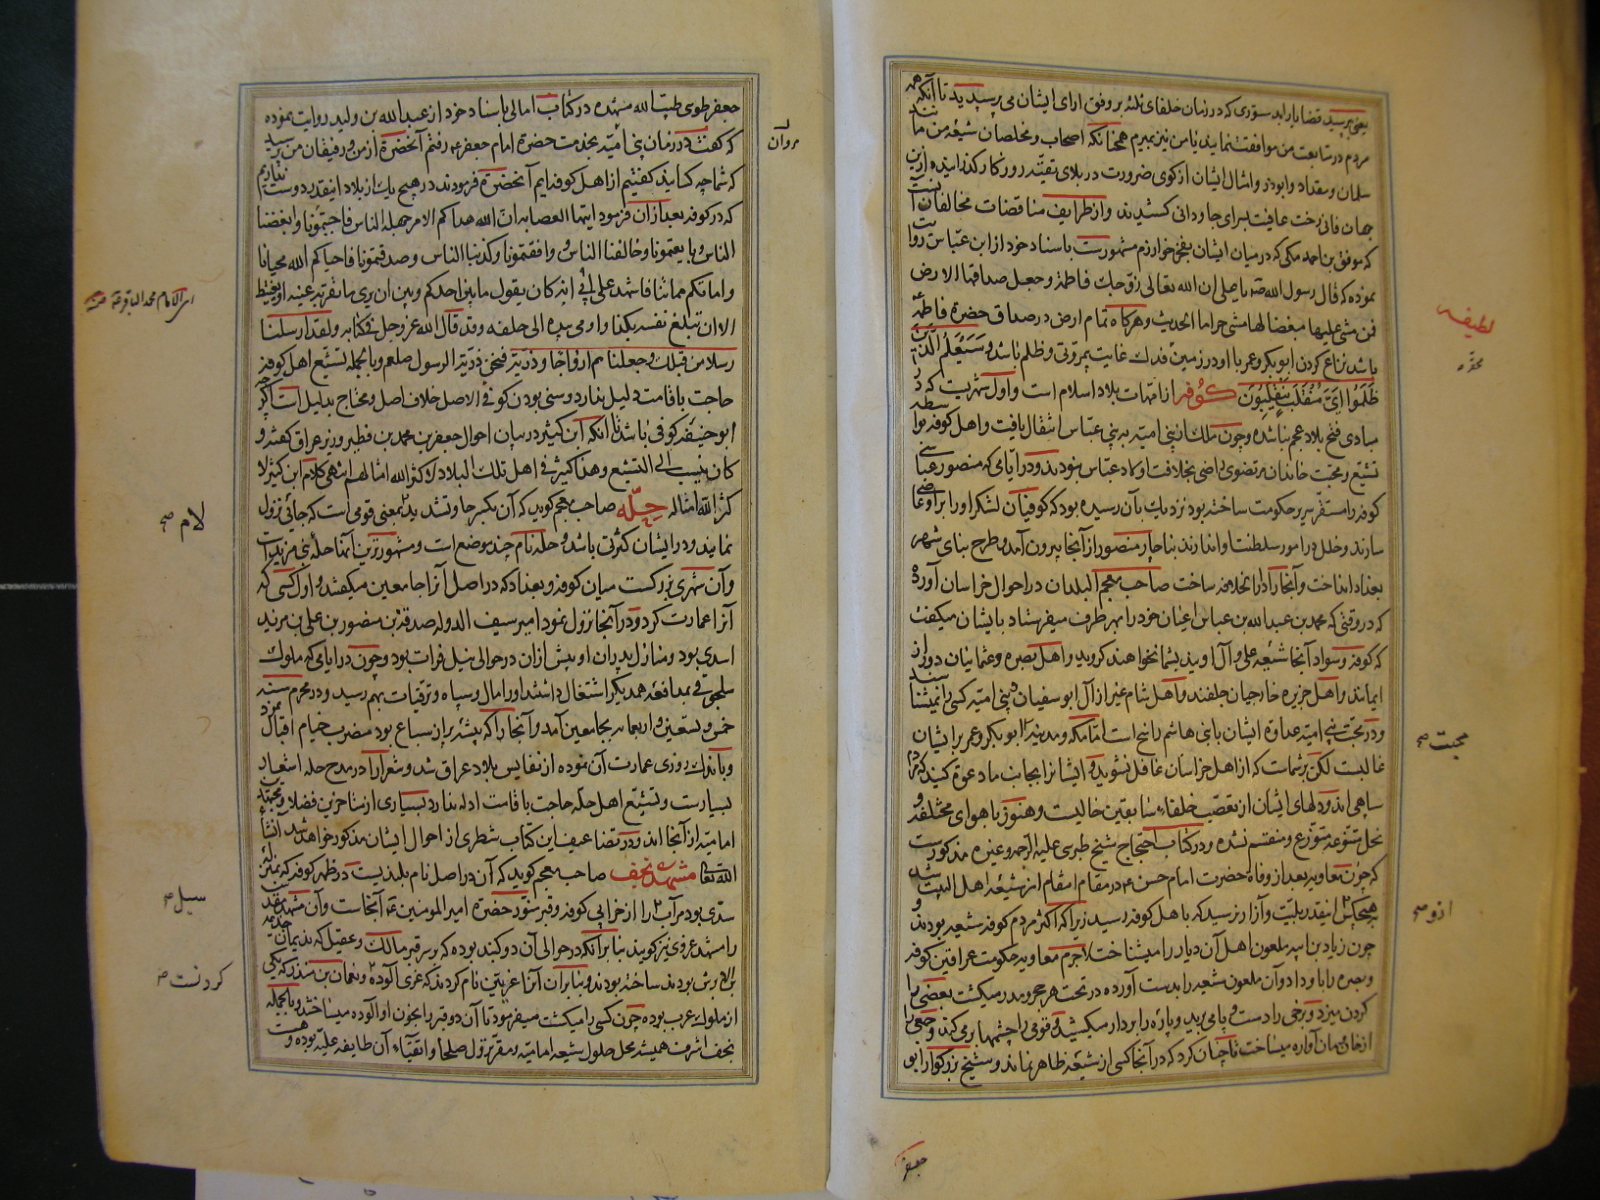 یعنی بپرسید قضایا را بدستوری که در زمان خلفای ثلثه بر وفق ارای ایشان می پرسیدید تا آنکه همه
مردم در متابعت من موافقت نمایند یا من نیز بمیرم همچنانکه اصحاب و مخلصان شیعه من مانند
سلمان و مقداد و ابوذر و امثال ایشان از کوی ضرورت در بلای تقیّه روزگار گذرانیده ازین
جهان فانی رخت عافیت بسرای جاودانی کشیدند و از طرایف مناقضات مخالفان آنست
که موفق بن احمد مکی که در میان ایشان بفخر خوارزم مشهورست باسناد خود از ابن عباس روایت
نموده که قال رسول الله صه یا علی ان الله تعالی زوّجک فاطمة و جعل صداقها الارض
فمن مشی علیها مبغضا لها مشی حراما الحدیث و هرگاه تمام ارض در صداق حضرة فاطمه
باشد نزاع کردن ابوبکر و عمر با او در زمین فدک غایت بیمروتی و ظلم باشد و سَیَعْلَمُ الَّذِینَ
ظَلَمُوا اَیَّ مُنْقَلَبٍ یَنْقَلِبُونَ کوفه از امهات بلاد اسلام است و اول شهریست که در
مبادی فتح بلاد عجم بنا شده و چون ملک از بنی امیّه به بنی عباس انتقال یافت و اهل کوفه بواسطه
تشیّع و محبت خاندان مرتضوی راضی بخلافت اولاد عباس نبودند و در ایامی که منصور عباسی
کوفه را مستقر سریر حکومت ساخته بود نزدیک بآن رسیده بود که کوفیان لشکر او را بر او عاصی
سازند و خلل در امور سلطنت او اندازند بناچار منصور از آنجا بیرون آمد و طرح بنای شهر
بغداد انداخت و آنجا را دار الخلافه ساخت صاحب معجم البلدان در احوال خراسان آورده
که در وقتی که محمد بن عبد الله بن عباس اعیان خود را بهر طرف میفرستاد بایشان میگفت
که کوفه و سواد آنجا شیعه علی و آل اویند بشما نخواهند گروید و اهل بصره و عثمانیان دور از
ایمانند و اهل جزیره خارجیان جلفند و اهل شام غیر از آل ابو سفیان و بنی امیّه کسی را نمیشناسند
و در محبّت بنی امیّه عداوة ایشان با بنی هاشم راسخ است اما مکه و مدینه ابوبکر و عمر بر ایشان
غالبست لیکن بر شماست که از اهل خراسان غافل نشوید و ایشان را بجانب ما دعوة کنید که مردم
سپاهی اند و دلهای ایشان از تعصّب خلفاء سابقین خالیست و هنوز باهوای مختلفه و
نحل متنوعه متوزّع و منقسم نشده و در کتاب احتجاج شیخ طبرسی علیه الرحمه و غیره مذکورست
که چون معاویه بعد از وفاة حضرت امام حسن عم در مقام انتقام از شیعه اهل البیت شد
هیچکس را اینقدر بلیّت و آزار نرسید که باهل کوفه رسید زیرا که اکثر مردم کوفه شیعه بودند و
چون زیاد بن ابیه ملعون اهل آن دیار را میشناخت لاجرم معاویه حکومت عراقین کوفه
و بصره را باو داد و آن ملعون شیعه را بدست آورده در تحت هر حجر و مدر میکشت بعضی را
گردن میزد و برخی را دست و پا می برید و پاره را بر دار میکشید و قومی را چشمها بر می کند و جمعی را
از خان و مان آواره میساخت تا چنان کرد که در آنجا کسی از شیعه ظاهر نماند و شیخ بزرگوار ابو
لطیفه
محبت صح
ازو صح
جعفر
جعفر طوسی طیّب الله مشهده در کتاب امالی باسناد خود از عبد الله بن ولید روایت نموده
که گفت در زمان بنی امیّه بخدمت حضرة امام جعفر عم رفتم آنحضرة از من و رفیقان من پرسید
که شما چه کسانید گفتیم از اهل کوفه ایم آنحضرة فرمودند در هیچ یک از بلاد اینقدر دوست نداریم
که در کوفه بعد از آن فرمود ایتها العصابه انّ الله هداکم لامر جهله الناس فاحببتمونا و ابغضنا
الناس و بایعتمونا و خالفنا الناس و وافقتمونا و کذبنا الناس و صدقتمونا فاحیاکم الله محیانا
و اماتکم مماتنا فاشهد علی ابی انه کان یقول ما بین احدکم و بین ان یری ما تقرّ به عینه او یغتبط
الا ان تبلغ نفسه هکذا و اومی بیده الی حلقه و قد قال الله عز و جل فی کتابه و لقد ارسلنا
رسلا من قبلک و جعلنا لهم ازواجا و ذریة فنحن ذریّة الرسول صلعم و بالجمله تشیّع اهل کوفه
حاجت باقامت دلیل ندارد و سنی بودن کوفی الاصل خلاف اصل و محتاج بدلیل است اگرچه
ابو حنیفه کوفی باشد تا آنکه ابن کثیر در بیان احوال جعفر بن محمد بن فطیر وزیر عراق گفته و
کان ینسب الی التشیّع و هذا کثیر فی اهل تلک البلاد لا کثّر الله امثالهم انتهی کلام ابن کثیر لا
کثّر الله امثاله حِلّه صاحب معجم گوید که آن بکسر حا و تشدید بمعنی قومی است که جائی نزول
نمایند و در ایشان کثرتی باشد و حله نام چند موضع است و مشهورترین آنها حله بنی مزیدست
و آن شهری بزرگست میان کوفه و بغداد که در اصل آنرا جامعین میگفتند و اول کسی که
آنرا عمارت کرد و در آنجا نزول نمود امیر سیف الدوله صدقة بن منصور بن علی بن مزید
اسدی بود و منازل پدران او پیش از آن در حوالی نیل فرات بود و چون در ایامی که ملوک
سلجوقی بمدافعه همدیگر اشتغال داشتند او را مال و سپاه و ترقیات بهم رسید و در محرم سنه
خمس و تسعین و اربعمائه بجامعین آمد و آنجا را که بیشه پر از سباع بود مضرب خیام اقبال نمود
و باندک روزی عمارت آن نموده از نفایس بلاد عراق شد و شعرا را در مدح حله اشعار
بسیارست و تشیّع اهل حلّه حاجت باقامت ادله ندارد بسیاری از متاخرین فضلا و مجتهدان
امامیّه از آنجا اند و در تضاعیف این کتاب شطری از احوال ایشان مذکور خواهد شد انشاء
الله تعالی مشهد نجف صاحب معجم گوید که آن در اصل نام بلندیست در ظهر کوفه که بمنزله
سدّی بود مر آب را از خرابی کوفه و قبر منوّر حضرة امیر المومنین عم آنجاست و آن مشهد مقدس
را مشهد غروی نیز گویند بنابر آنکه در حوالی آن دو گنبد بوده که بر سر قبر مالک و عقیل که ندیمان جذیمه
الابرش بودند ساخته بودند و بنابر آن آنرا غریّین نام کردند که غری آلوده و نعمان بن منذر که یکی
از ملوک عرب بوده چون کسی را میکشت میفرمود تا آن دو قبر را بخون او آلوده میساختند و بالجمله
نجف اشرف همیشه محل حلول شیعه امامیّه و مقر نزول صلحا و اتقیاء آن طایفه علیّه بوده و هست
مروان
لام صح
سیل صح
گردنست صح